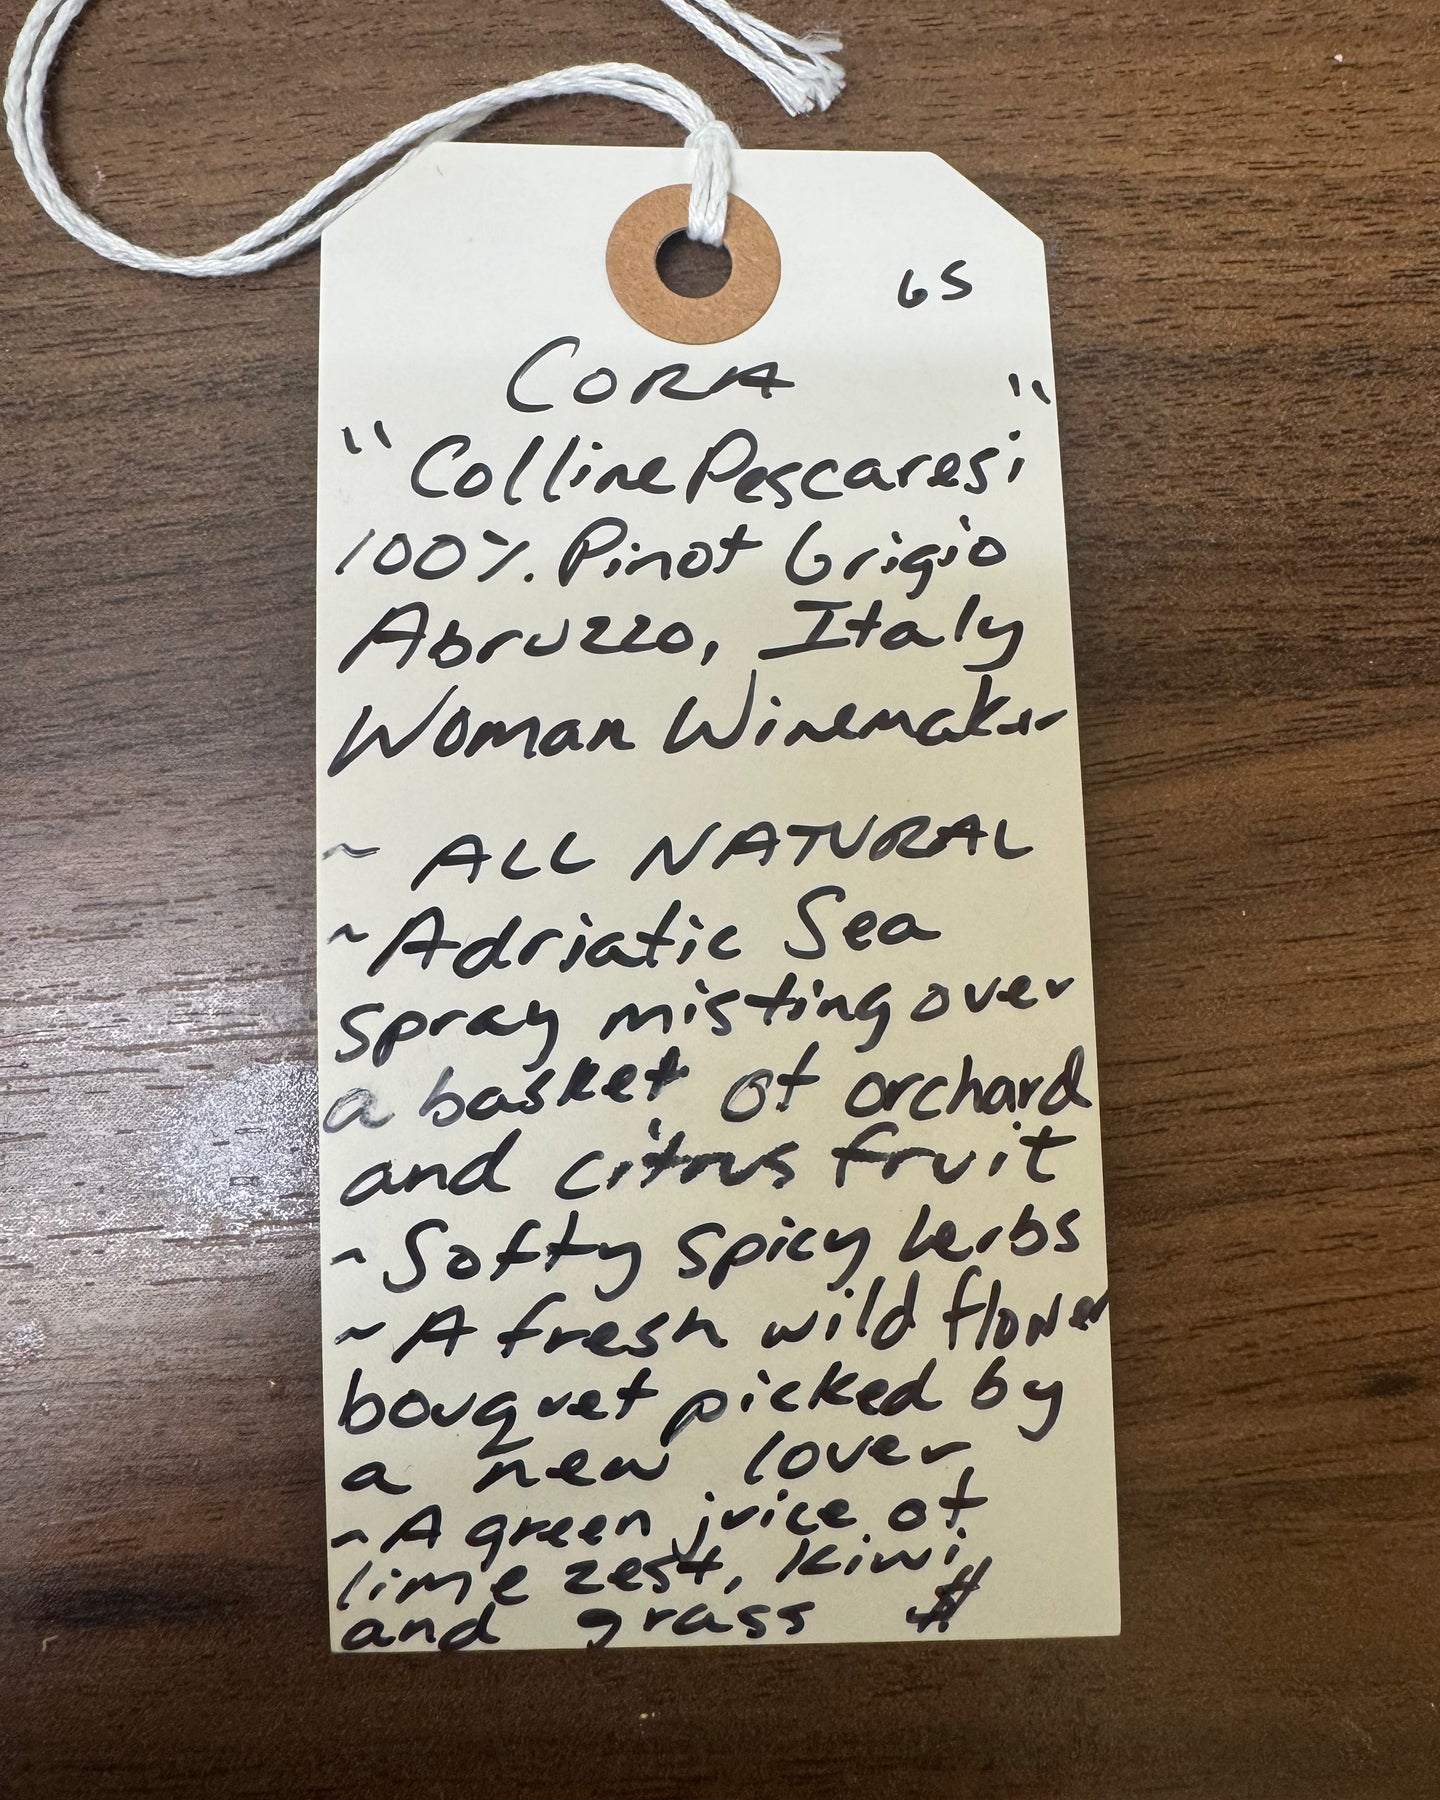 65
CORA
"Colline Pescaresi"
100% Pinot Grigio
Abruzzo, Italy
Woman Winemaker
~ ALL NATURAL
~ Adriatic Sea
spray misting over
a basket of orchard
and citrus fruit
~ Softy spicy herbs
~ A fresh wild flower
bouquet picked by
a new lover
~ A green juice of
lime zest, kiwi
and grass #